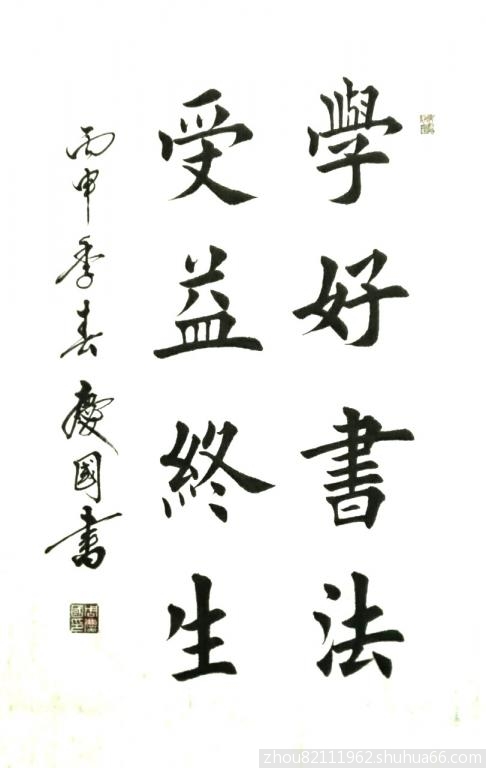 學好書法
受益終生
丙申季春慶國書
zhou82111962.shuhua66.com